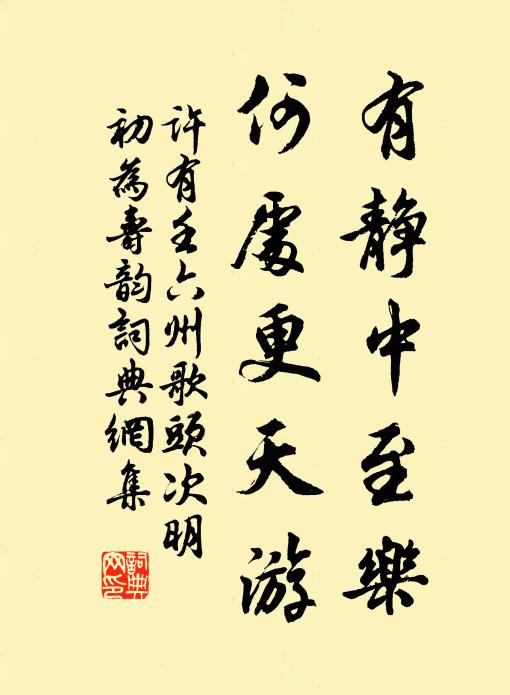 有静中至樂
何處更天游
許有壬六州歌頭次明
初為壽韵詞典網集
詞典
网印